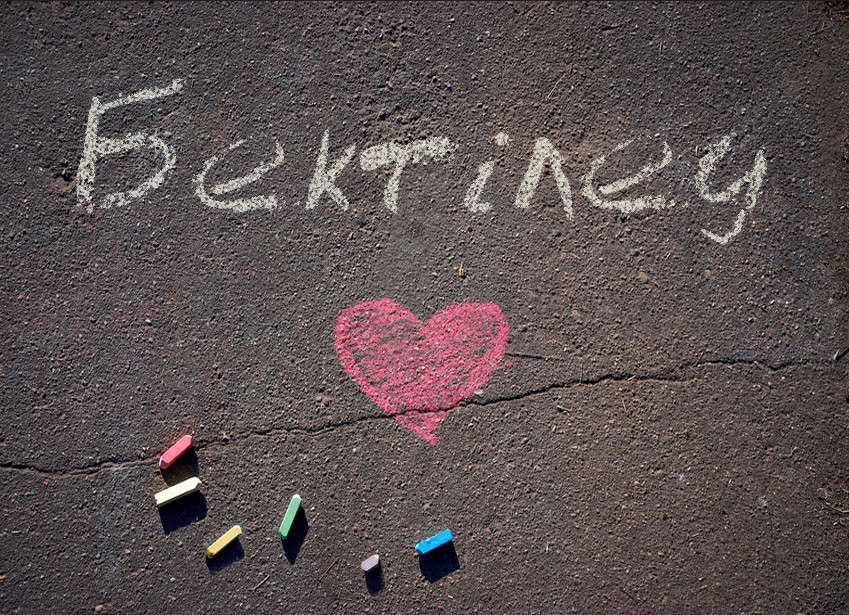 Бектілеу